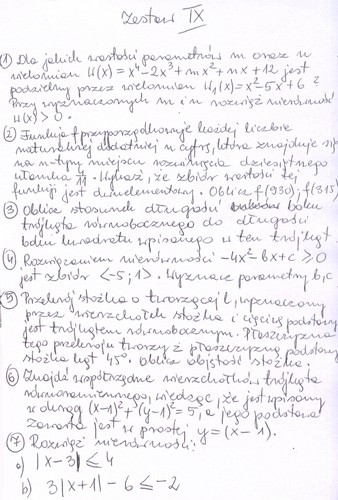 Zestaw IX
① Dla jakich wartości parametrów m oraz n
wielomian W(x) = x⁴-2x³+mx²+nx+12 jest
podzielny przez wielomian W₁(x)=x²-5x+6?
Przy wyznaczonych m i n rozwiąż nierówność
W(x) > 0.
② Funkcja f przyporządkowuje każdej liczbie
naturalnej dodatniej n cyfrę, która znajduje się
na n-tym miejscu rozwinięcia dziesiętnego
ułamka 4/11. Wykaż, że zbiór wartości tej
funkcji jest dwuelementowy. Oblicz f(930); f(315)
③ Oblicz stosunek długości boku
trójkąta równobocznego do długości
boku kwadratu wpisanego w ten trójkąt.
④ Rozwiązaniem nierówności -4x²-bx+c ≥0
jest zbiór <-5;1>. Wyznacz parametry b, c
⑤ Przekrój stożka o tworzącej l, wyznaczony
przez wierzchołek stożka i cięciwę podstawy
jest trójkątem równobocznym. Płaszczyzna
tego przekroju tworzy z płaszczyzną podstawy
stożka kąt 45°. Oblicz objętość stożka.
⑥ Znajdź współrzędne wierzchołków trójkąta
równoramiennego, wiedząc, że jest wpisany
w okrąg (x-1)²+(y-1)²=5, a jego podstawa
zawarta jest w prostej y=(x-1).
⑦ Rozwiąż nierówności:
a) |x-3| ≤ 4
b) 3|x+1| - 6 ≤ -2